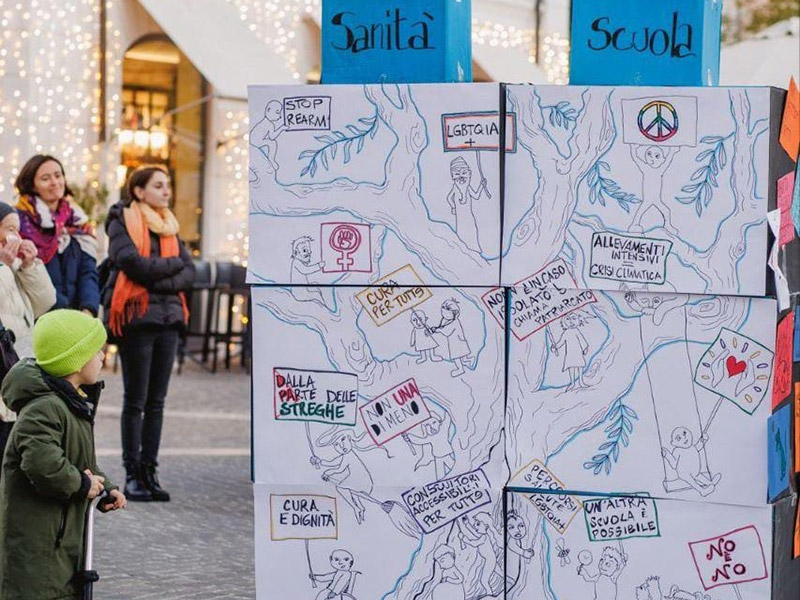 Sanità
Scuola
STOP
REARM
LGBTQIA
+
ALLEVAMENTI
INTENSIVI
=
CRISI CLIMATICA
CURA
PER TUTT3
NON È IN CASO
ISOLATO SI
CHIAMA
PATRIARCATO
DALLA
PARTE DELLE
STREGHE
NON UNA
DI MENO
CURA
E DIGNITÀ
CONSULTORI
ACCESSIBILI
PER TUTT3
PERCORSI
SALUTE
LGBTQIA+
UN'ALTRA
SCUOLA È
POSSIBILE
NO È
NO